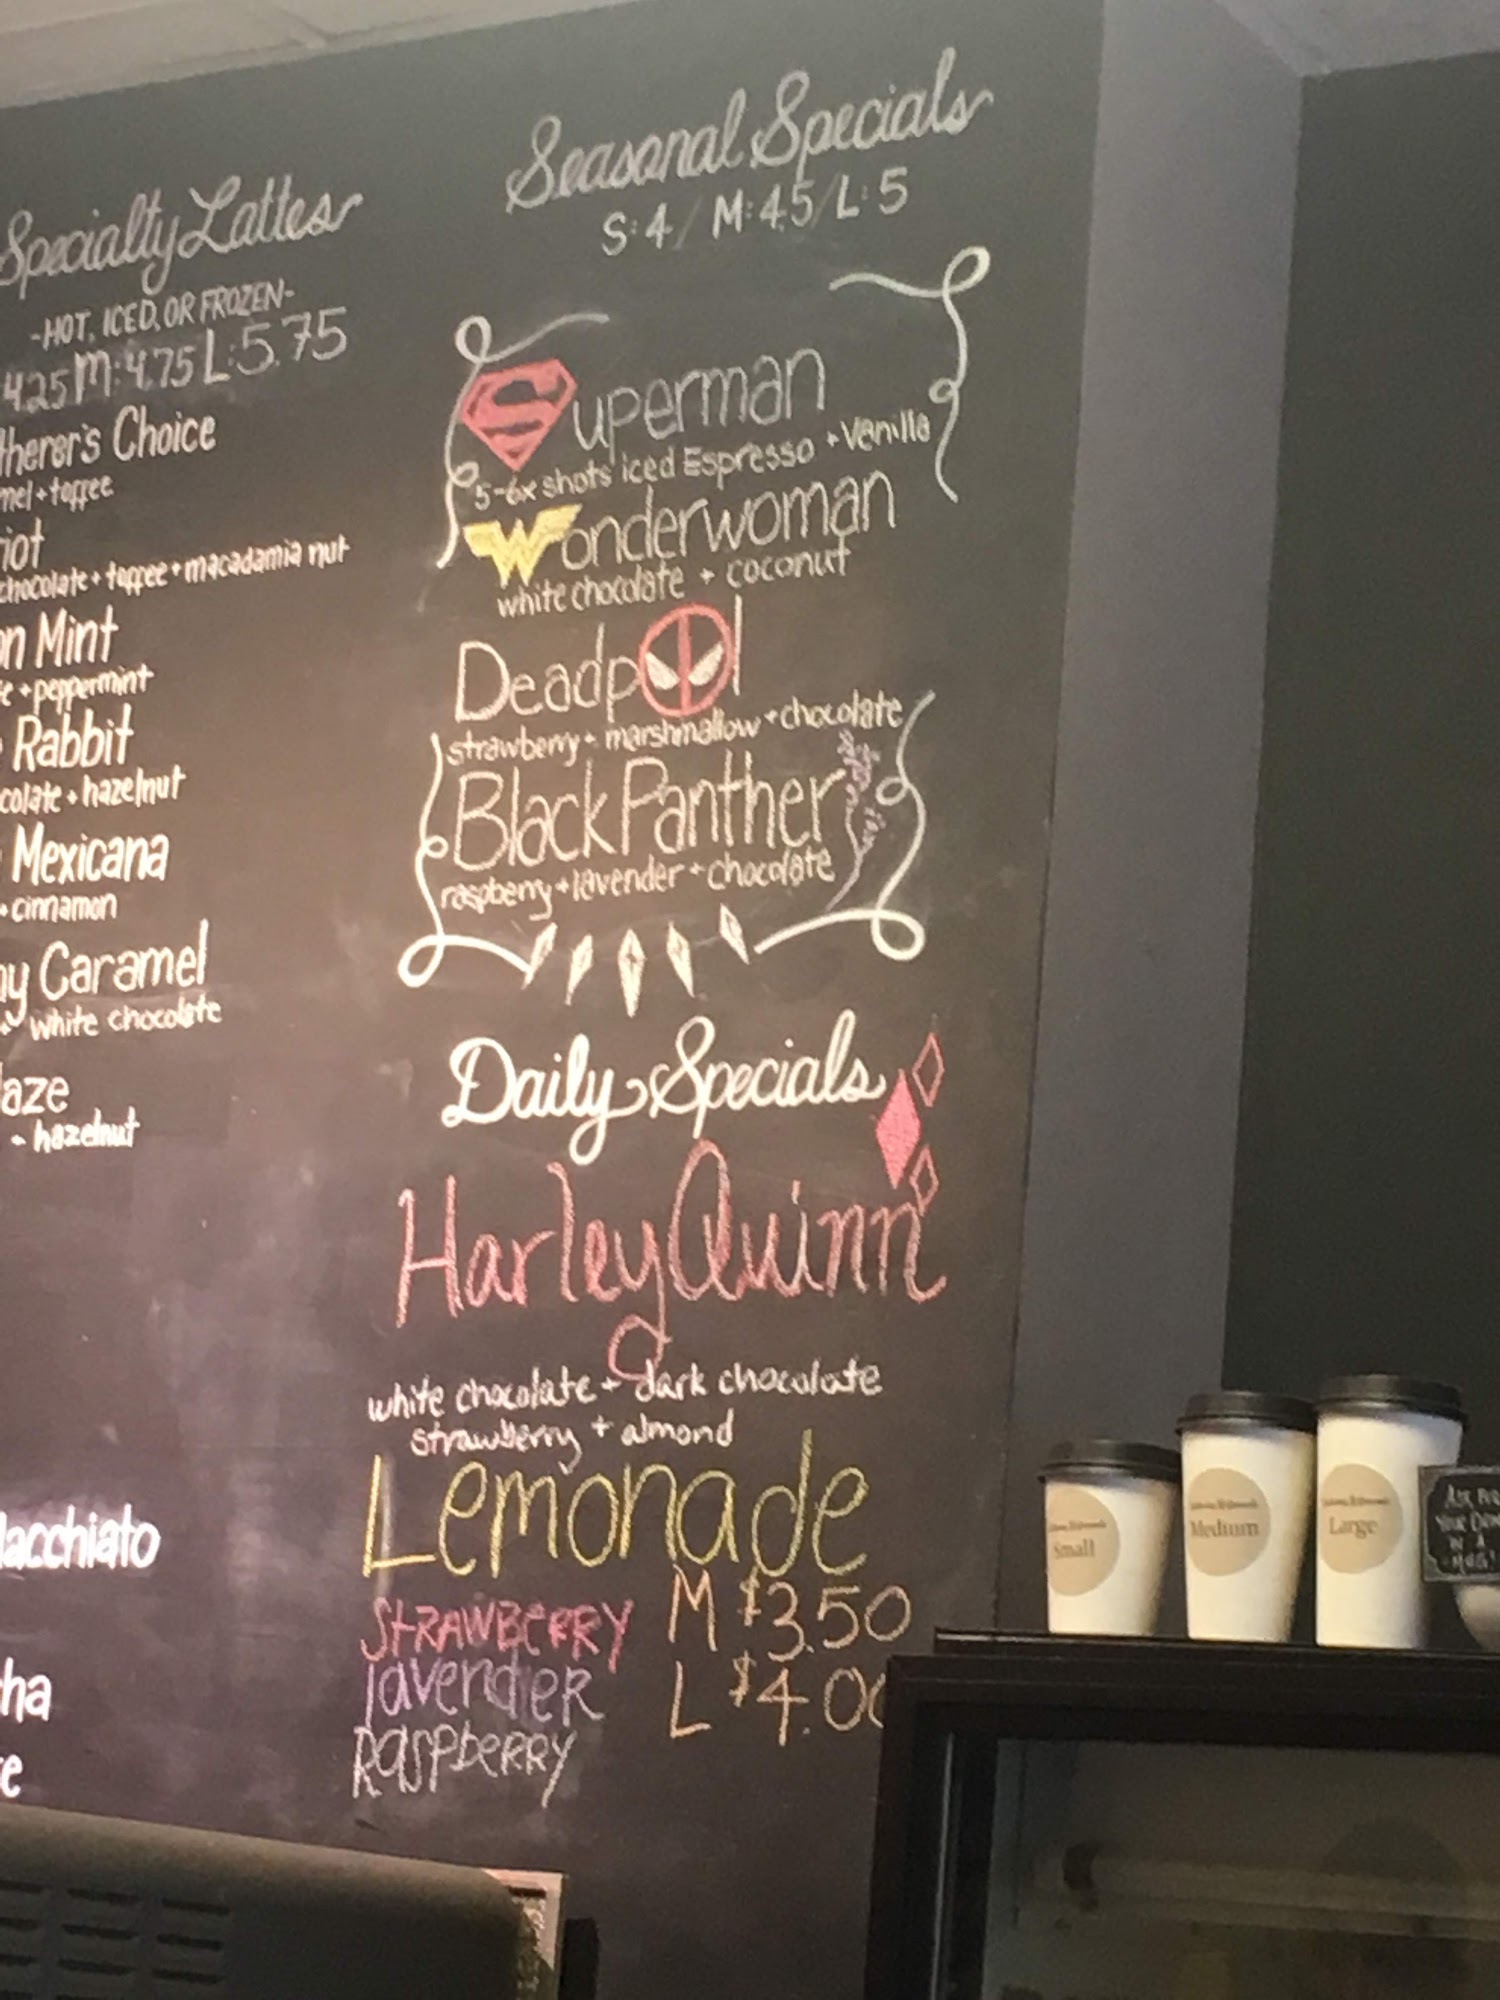 Specialty Lattes
-HOT, ICED, OR FROZEN-
4.25 M:4.75 L:5.75
therer's Choice
mel+toffee
iot
chocolate+toffee+macadamia nut
on Mint
e+peppermint
Rabbit
colate+hazelnut
Mexicana
+cinnamon
ny Caramel
+ white chocolate
laze
- hazelnut
Macchiato
cha
e
Seasonal Specials
S:4/ M:4.5/ L:5
Superman
5-6x shots iced Espresso + Vanilla
Wonderwoman
white chocolate + coconut
Deadpool
strawberry + marshmallow + chocolate
Black Panther
raspberry + lavender + chocolate
Daily Specials
Harley Quinn
white chocolate + dark chocolate
strawberry + almond
Lemonade
STRAWBERRY M $3.50
lavender L $4.00
RaspbeRRY
Small
Medium
Large
ASK FOR
YOUR DRINK
IN A
MUG!